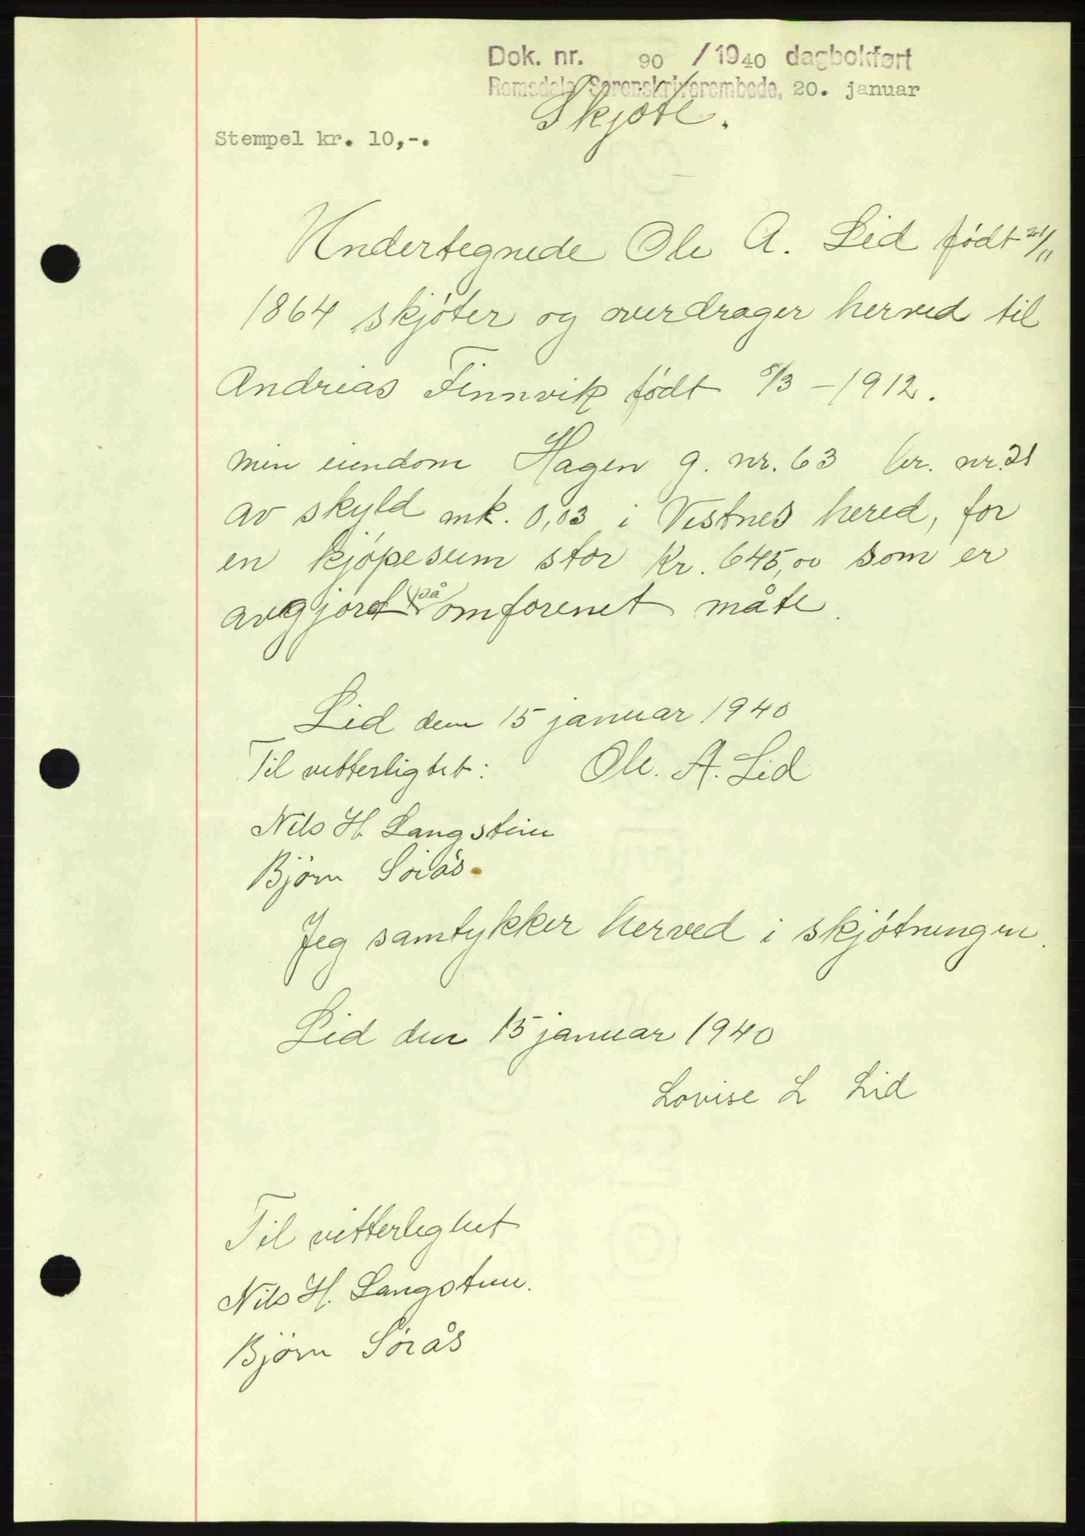 Dok. nr. 90 /1940 dagbokført
Romsdals Sorenskriverembede, 20. januar
Skjøte.
Stempel kr. 10,-.
Undertegnede Ole A. Lid født 21/11
1864 skjøter og overdrager herved til
Andreas Finnvik født 8/3 - 1912.
min eiendom Hagen g. nr. 63 br. nr. 21
av skyld mk. 0,03 i Vestnes hered, for
en kjøpesum stor kr. 645,00 som er
avgjord på omforenet måte.
Lid den 15 januar 1940
Til vitterlighet: Ole. A. Lid
Nils H. Langstein
Bjørn Sørås.
Jeg samtykker herved i skjøtningen.
Lid den 15 januar 1940
Lovise L Lid
Til vitterlighet
Nils H. Langstein.
Bjørn Sørås